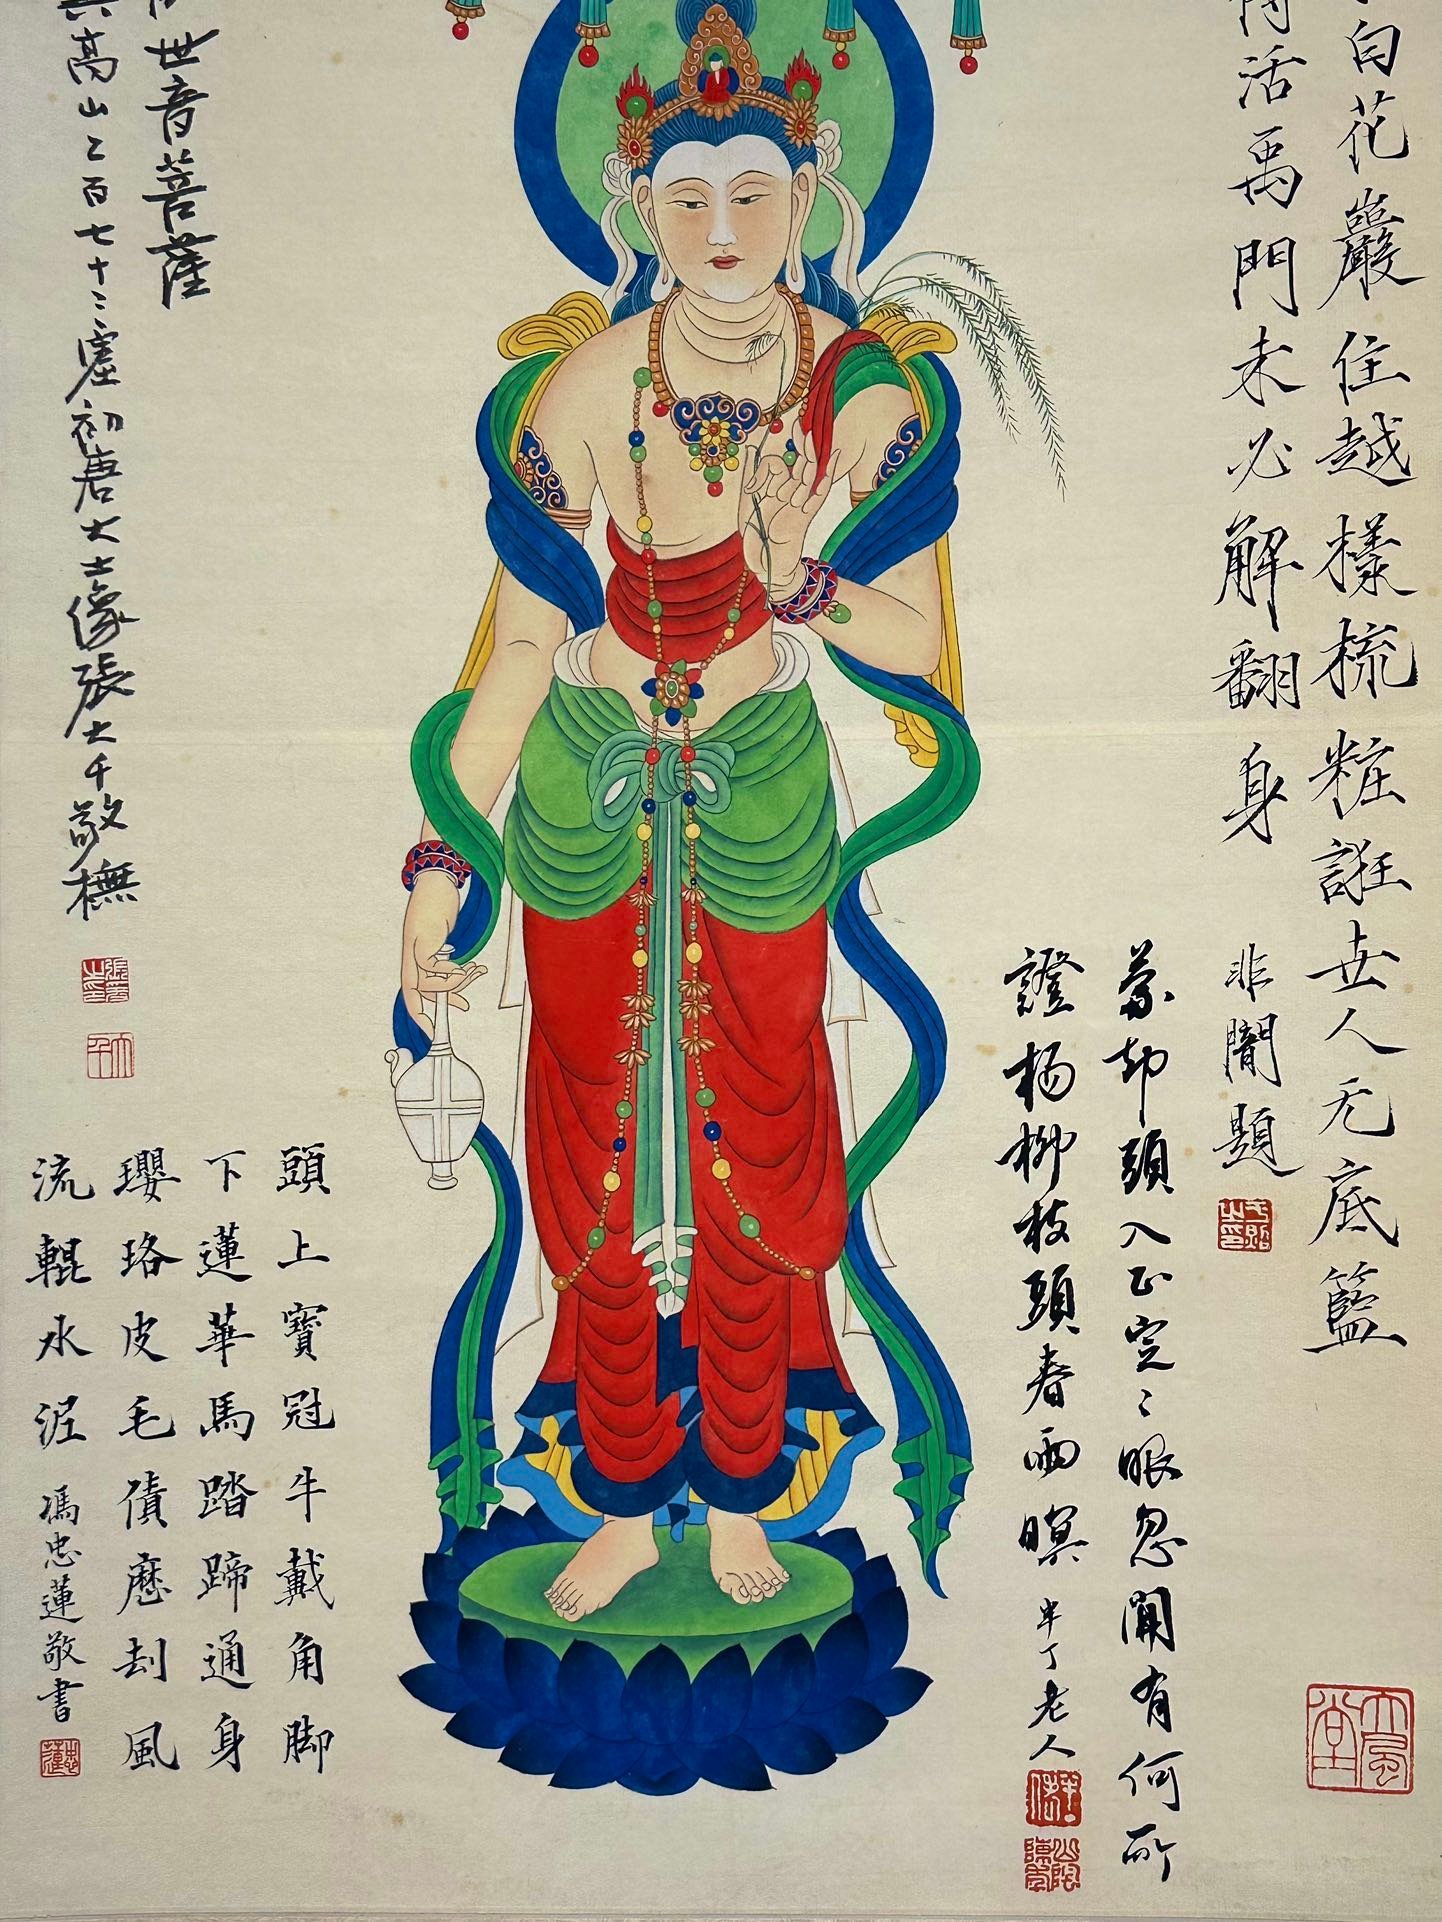 白花巖住越樣梳粧誑世人无底籃
活禹門未必解翻身
非闇題
蒙却頭入正定〻眼忽開有何所
證楊柳枝頭春雨暝
半丁老人
世音菩薩
高山二百七十二窟初唐大士像張大千敬橅
頭上寶冠牛戴角脚
下蓮華馬踏蹄通身
瓔珞皮毛債應刦風
流輥水泥
馮忠蓮敬書